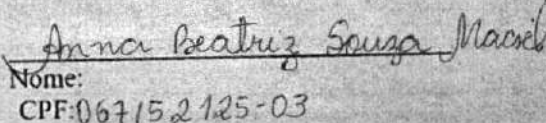 Anna Beatriz Souza Maciel
Nome:
CPF:067152125-03